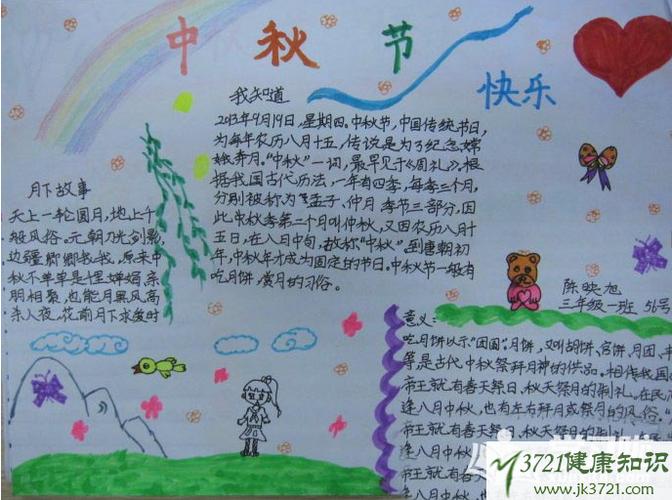 中秋节
快乐
我知道
2013年9月19日，星期四。中秋节，中国传统节日，
为每年农历八月十五，传说是为了纪念嫦
娥奔月。“中秋”一词，最早见于《周礼》。根
据我国古代历法，一年有四季，每季三个月，
分别被称为孟子、仲月季节三部分，因
此中秋季第二个月叫仲秋，又因农历八月十
五日，在八月中旬，故称“中秋”。到唐朝初
年，中秋年才成为固定的节日。中秋节一般有
吃月饼、赏月的习俗。
月下故事
天上一轮圆月，地上千
般风俗。元朝刀光剑影，
边疆卿卿我我，原来中
秋不单单是婵娟，亲
朋相聚，也能月黑风高
杀人夜，花前月下求爱时
陈映旭
三年级一班 56号
意义：
吃月饼以示“团圆”月饼，又叫胡饼、宫饼、月团、
等是古代中秋祭拜月神的供品。相传我国
帝王就有春天祭日、秋天祭月的制礼。在民
逢八月中秋，也有左右拜月或祭月的风俗。
帝王就有春天祭日、秋天祭月的制礼
逢八月中秋
帝王就有春天祭
八月中
3721健康知识
www.jk3721.com